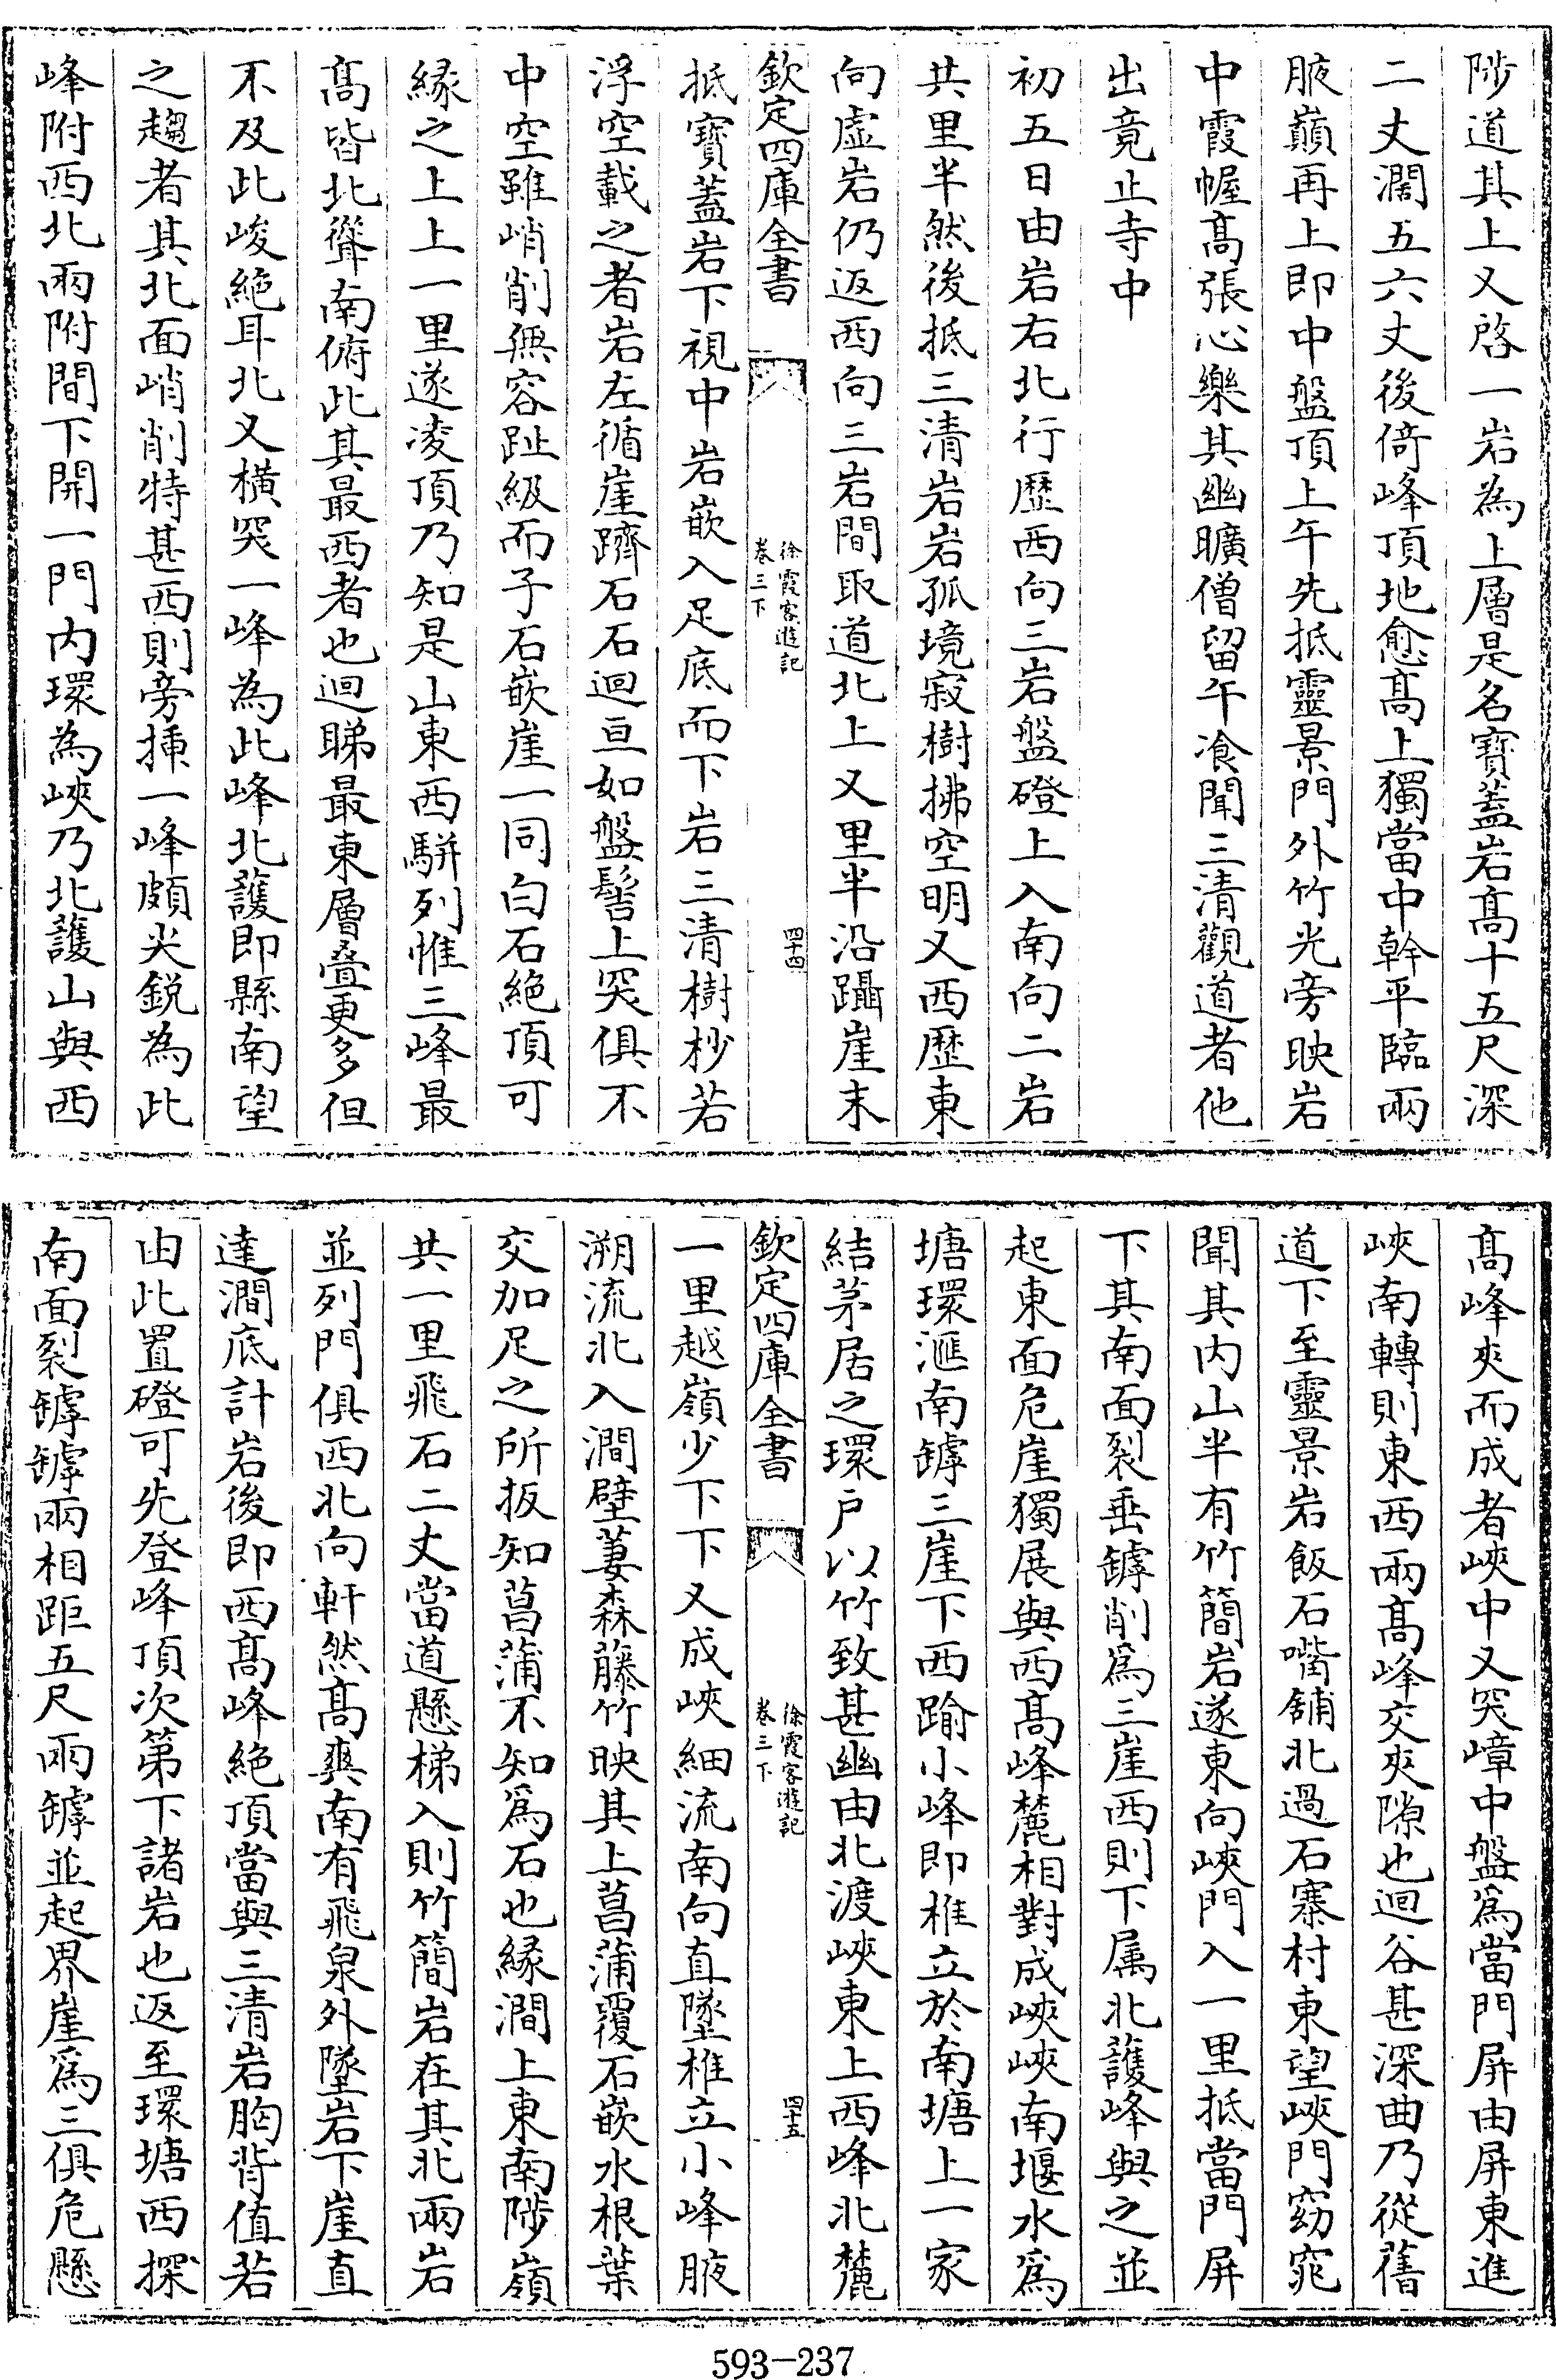 陟道其上又啓一岩為上層是名寶蓋岩髙十五尺深
二丈濶五六丈後倚峰頂地愈髙上獨當中幹平臨兩
腋巔再上即中盤頂上午先抵靈景門外竹光旁映岩
中霞幄髙張心樂其幽曠僧留午飡聞三清觀道者他
出竟止寺中
初五日由岩右北行歷西向三岩盤磴上入南向二岩
共里半然後抵三清岩岩孤境寂樹拂空明又西歷東
向虛岩仍返西向三岩間取道北上又里半沿躡崖末
欽定四庫全書
徐霞客遊記
卷三下
四十四
抵寶蓋岩下視中岩嵌入足底而下岩三清樹杪若
浮空載之者岩左循崖躋石石迴亘如盤髻上突俱不
中空雖峭削無容趾級而子石嵌崖一同白石絶頂可
縁之上上一里遂凌頂乃知是山東西駢列惟三峰最
髙皆北聳南俯此其最西者也迴睇最東層叠更多但
不及此峻絶耳北又橫突一峰為此峰北護即縣南望
之趨者其北面峭削特甚西則旁插一峰頗尖銳為此
峰附西北兩附間下開一門内環為峽乃北護山與西
髙峰夾而成者峽中又突嶂中盤爲當門屏由屏東進
峽南轉則東西兩髙峰交夾隙也迴谷甚深曲乃從舊
道下至靈景岩飯石嘴舖北過石寨村東望峽門窈窕
聞其内山半有竹簡岩遂東向峽門入一里抵當門屏
下其南面裂垂罅削爲三崖西則下属北護峰與之並
起東面危崖獨展與西髙峰麓相對成峽峽南堰水爲
塘環滙南罅三崖下西踰小峰即椎立於南塘上一家
結茅居之環户以竹致甚幽由北渡峽東上西峰北麓
欽定四庫全書
徐霞客遊記
卷三下
四十五
一里越嶺少下下又成峽細流南向直墜椎立小峰腋
溯流北入澗壁蔞森藤竹映其上菖蒲覆石嵌水根葉
交加足之所扳知菖蒲不知爲石也縁澗上東南陟嶺
共一里飛石二丈當道懸梯入則竹簡岩在其北兩岩
並列門俱西北向軒然髙爽南有飛泉外墜岩下崖直
達澗底計岩後即西髙峰絶頂當與三清岩胸背值若
由此置磴可先登峰頂次第下諸岩也返至環塘西探
南面裂罅罅兩相距五尺兩罅並起界崖爲三俱危懸
593-237